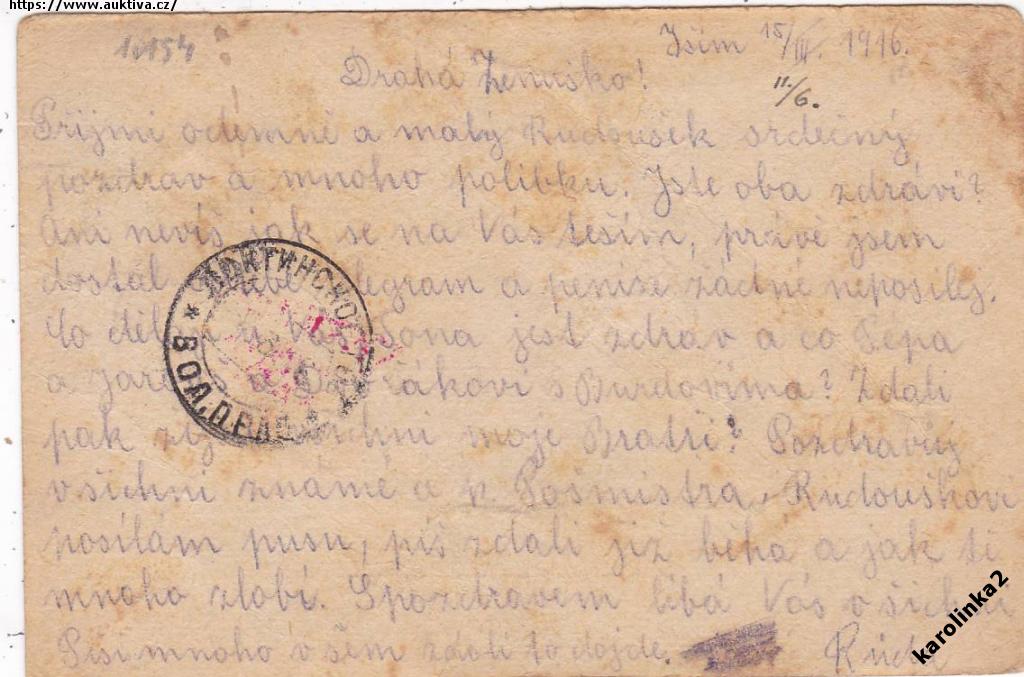 https://www.auktiva.cz/
1.154
Išim 15/III. 1916.
11./6.
Drahá Ženuško!
Přijmi odemně a malý Rudoušek srdečný
pozdrav a mnoho polibku. Jste oba zdrávi?
Ani nevíš jak se na Vás těším, právě jsem
dostal telegram a penize žádné neposilej.
Co u Vás jest zdrav a co Pepa
a s Burdovima? Zdali
pak moje Bratři? Pozdravuj
všichni známé a p. Pošmistra. Rudouškovi
posílám pusu, piš zdali již běhá a jak tě
mnoho zlobí. S pozdravem líbá Vás všichni
Piši mnoho o všem zdali to dojde. Ruda
* ВОЛ. ПРАВ. *
karolinka2